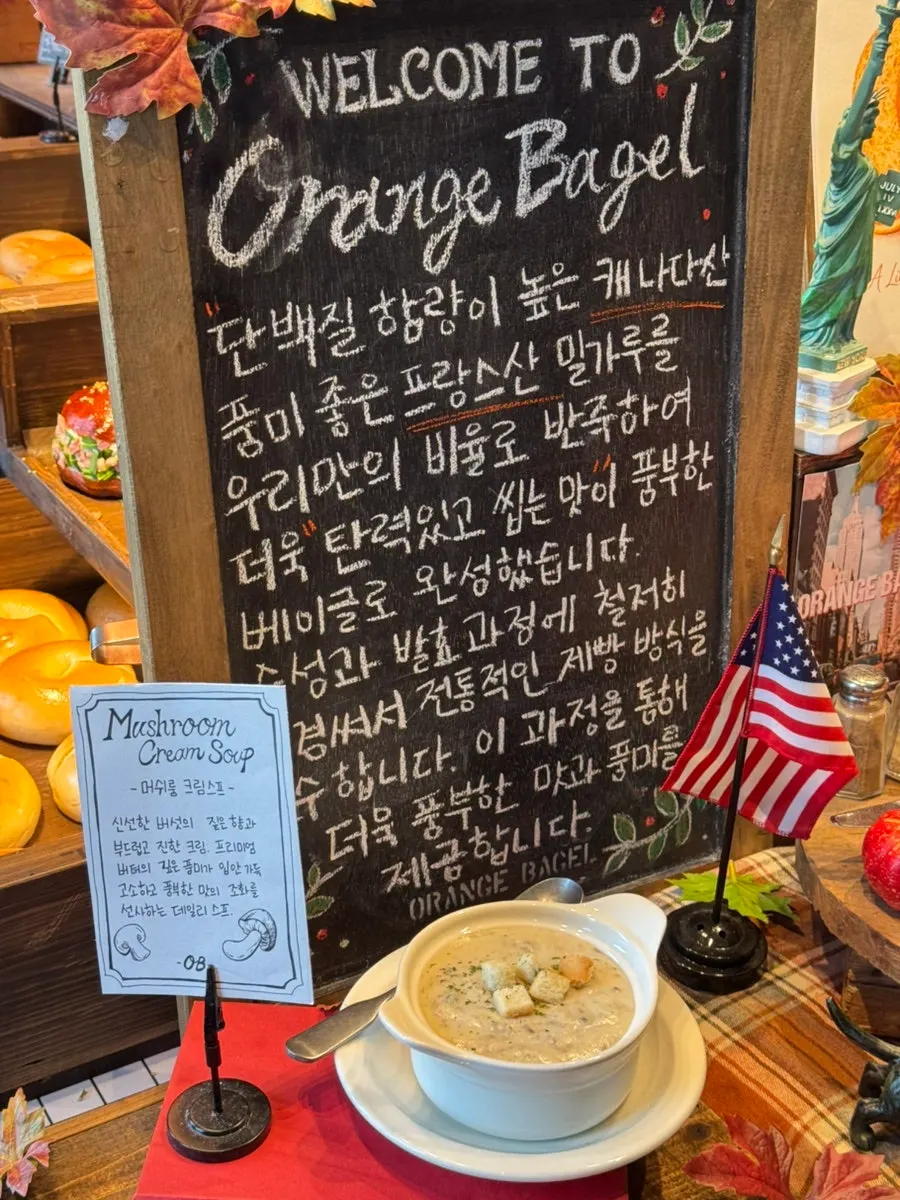 WELCOME TO
Orange Bagel
"단백질 함량이 높은 캐나다산
풍미 좋은 프랑스산 밀가루를
우리만의 비율로 반죽하여
더욱" 탄력있고 씹는 맛"이 풍부한
베이글로 완성했습니다.
숙성과 발효과정에 철저히
신경써서 전통적인 제빵 방식을
고수합니다. 이 과정을 통해
더욱 풍부한 맛과 풍미를
제공합니다.
ORANGE BAGEL
Mushroom
Cream Soup
- 머쉬룸 크림스프 -
신선한 버섯의 짙은 향과
부드럽고 진한 크림, 프리미엄
버터의 깊은 풍미가 입안 가득
고소하고 풍부한 맛의 조화를
선사하는 데일리 스프.
-OB-
JULY
IV
NEW YORK
A Li
ORANGE BA